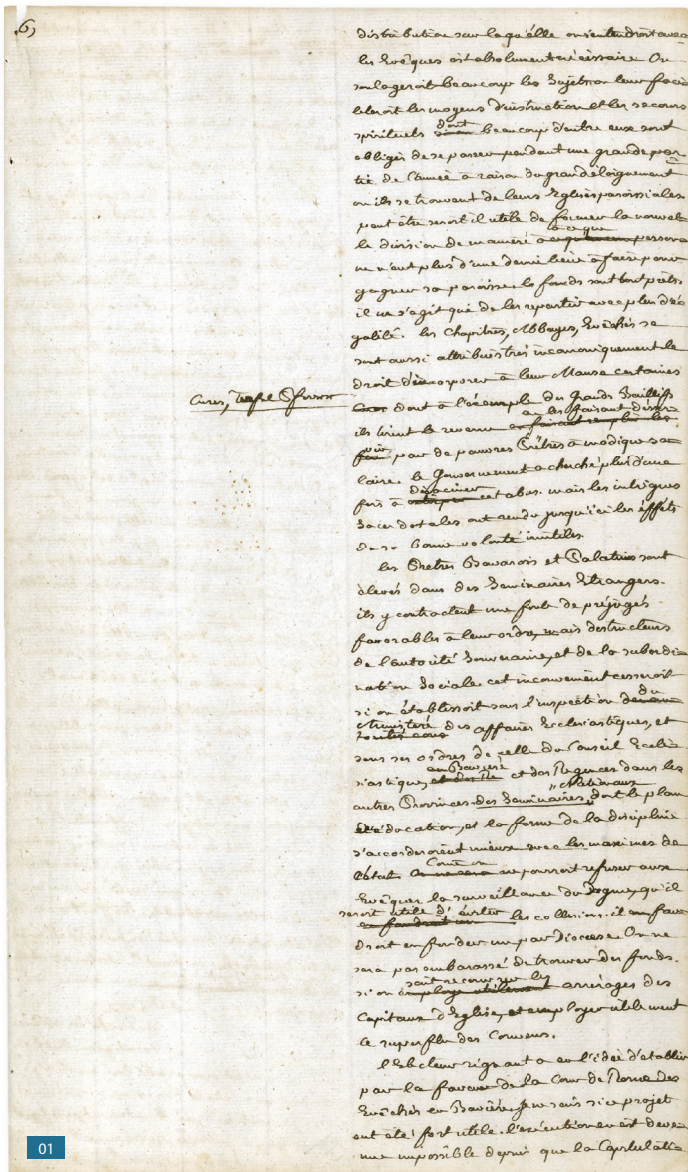 6)
distribution sur la qu'elle on s'entendroit avec
les Evêques est absolument nécéssaire. On
soulageroit beaucoup les Sujets, on leur faci
literoit les moyens d'instruction et les secours
spirituels dont beaucoup d'entre eux sont
obligés de se passer pendant une grande par=
tie de l'année à raison du grand éloignement
ou ils se trouvent de leurs Eglises paroissiales.
peut être seroit il utile de former la nouvel=
le division de maniere à ce que persone
ne n'eut plus d'une demi lieue à faire pour
gagner sa paroisse. les fonds sont tout prets.
il ne s'agit que de les repartir avec plus d'é=
galité. les Chapitres, Abbayes, Evêchés se
sont aussi attribués très incanoniquement le
droit d'incorporer à leur Manse certaines
Cures, dont à l'éxemple des Grands Baillifs
ils tirent le revenu en les faisant desser=
vir par de pauvres Prêtres à modique sa=
laire. le Gouvernement a cherché plus d'une
fois à déraciner cet abus. mais les intrigues
sacerdotales ont rendu jusqu'ici les éffets
de sa bonne volonté inutiles.
les Pretres Bavarois et Palatins sont
élevés dans des Seminaires Etrangers.
ils y contractent une foule de préjugés
favorables à leur ordre, mais destructeurs
de l'autorité Souveraine, et de la subordi=
nation Sociale. cet inconvenient cesseroit
si on établissoit sous l'inspection du
Ministere des affaires Ecclesiastiques, et
sous ses ordres de celle du Conseil Eccle=
siastique, en Baviere et des Regences dans les
autres Provinces des Seminaires Nationaux, dont le plan
d'éducation, et la forme de la discipline
s'accorderoient mieux avec les maximes de
l'état. Comme on ne pourroit refuser aux
Evêques la surveillance du Dogme, qu'il
seroit utile d'éviter les collusions. il en fau=
droit en fonder un par Diocese. On ne
sera pas embarassé de trouver des fonds.
si on sait recouvrer les arrérages des
Capitaux d'Eglise, et employer utilement
le superflu des Couvens.
l'Electeur regnant a eu l'idée d'établir
par la faveur de la Cour de Rome des
Evêchés en Baviere. Je ne sais si ce projet
eut été fort utile. l'exécution en est deve=
nue impossible depuis que la Capitulati=
01